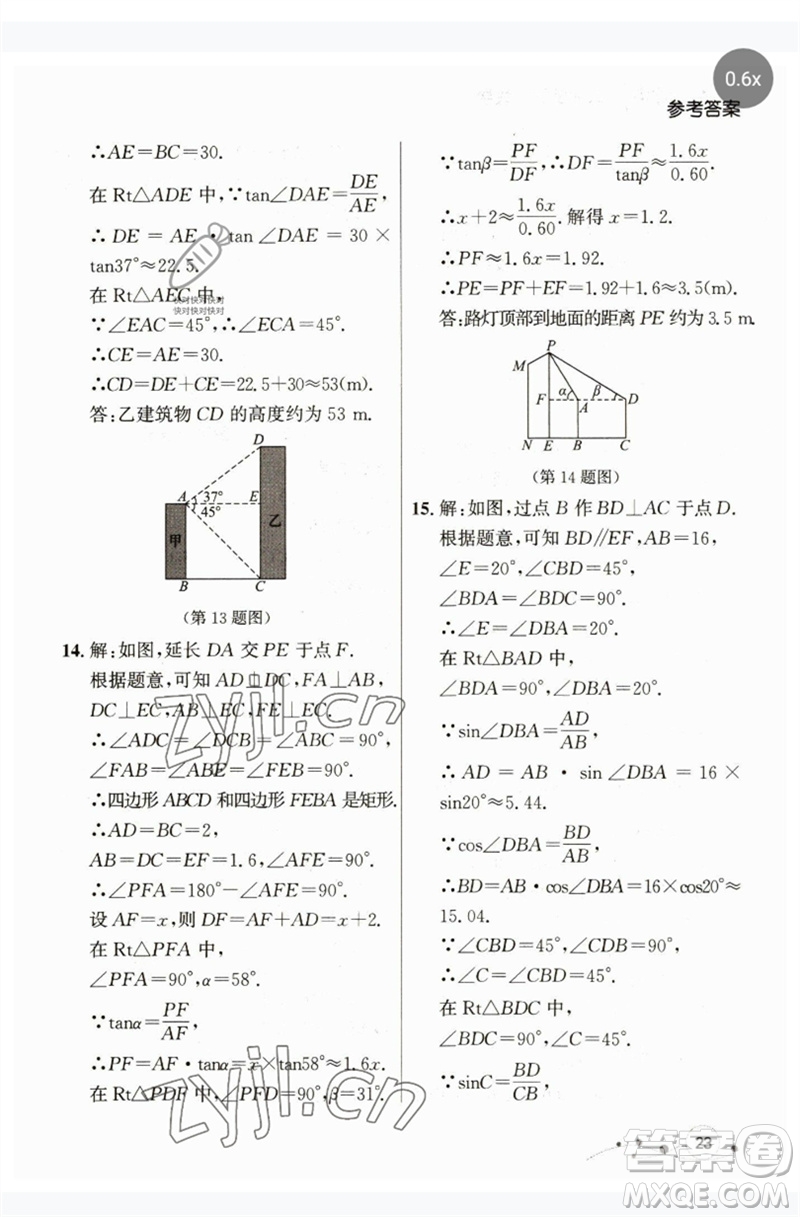 0.6x
参考答案
∴AE=BC=30.
在 Rt△ADE 中,∵tan∠DAE=DE/AE,
∴DE=AE·tan∠DAE=30×
tan37°≈22.5.
在 Rt△AEC 中,
∵∠EAC=45°,∴∠ECA=45°.
∴CE=AE=30.
∴CD=DE+CE=22.5+30≈53(m).
答:乙建筑物 CD 的高度约为 53 m.
快对快对快对
快对快对快对
D
A
37°
45°
E
甲
乙
B
C
(第 13 题图)
14. 解:如图,延长 DA 交 PE 于点 F.
根据题意,可知 AD⊥DC,FA⊥AB,
DC⊥EC,AB⊥EC,FE⊥EC.
∴∠ADC=∠DCB=∠ABC=90°,
∠FAB=∠ABE=∠FEB=90°.
∴四边形 ABCD 和四边形 FEBA 是矩形.
∴AD=BC=2,
AB=DC=EF=1.6,∠AFE=90°.
∴∠PFA=180°-∠AFE=90°.
设 AF=x,则 DF=AF+AD=x+2.
在 Rt△PFA 中,
∠PFA=90°,α=58°.
∵tanα=PF/AF,
∴PF=AF·tanα=x×tan58°≈1.6x.
在 Rt△PDF 中,∠PFD=90°,β=31°.
∵tanβ=PF/DF,∴DF=PF/tanβ≈1.6x/0.60.
∴x+2≈1.6x/0.60.解得 x=1.2.
∴PF≈1.6x=1.92.
∴PE=PF+EF=1.92+1.6≈3.5(m).
答:路灯顶部到地面的距离 PE 约为 3.5 m.
P
M
F
α
β
A
D
N
E
B
C
(第 14 题图)
15. 解:如图,过点 B 作 BD⊥AC 于点 D.
根据题意,可知 BD∥EF,AB=16,
∠E=20°,∠CBD=45°,
∠BDA=∠BDC=90°.
∴∠E=∠DBA=20°.
在 Rt△BAD 中,
∠BDA=90°,∠DBA=20°.
∵sin∠DBA=AD/AB,
∴AD=AB·sin∠DBA=16×
sin20°≈5.44.
∵cos∠DBA=BD/AB,
∴BD=AB·cos∠DBA=16×cos20°≈
15.04.
∵∠CBD=45°,∠CDB=90°,
∴∠C=∠CBD=45°.
在 Rt△BDC 中,
∠BDC=90°,∠C=45°.
∵sinC=BD/CB,
zyjl.cn
zyjl.cn
23
答案卷
MXQE.COM